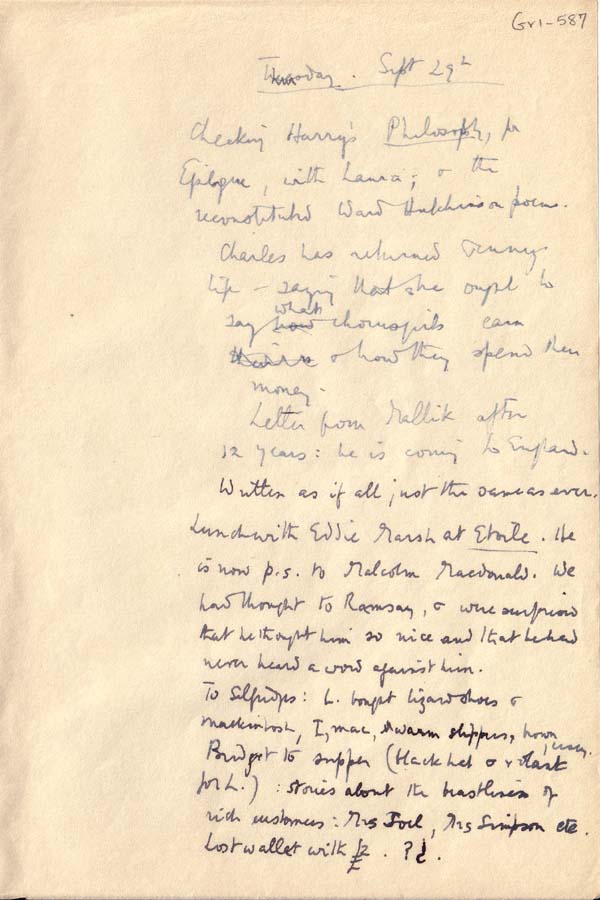 Gr1-587
Tuesday. Sept 29th
Checking Harry's Philosophy, for
Epilogue, with Laura; & the
reconstituted Ward Hutchinson poem.
Charles has returned Jenny's
life – saying that she ought to
what
say how chorusgirls earn
theirs & how they spend their
money.
Letter from Mallik after
12 years: he is coming to England.
Written as if all just the same as ever.
Lunch with Eddie Marsh at Etoile. He
is now p.s. to Malcolm Macdonald. We
had thought to Ramsay, & were surprised
that he thought him so nice and that he had
never heard a word against him.
To Selfridges: L. bought lizard shoes &
mackintosh, I, mac, & warm slippers, brown,
Bridget to supper (black hat &
for L.): stories about the beastliness of
rich customers: Mrs Joel, Mrs Simpson etc.
Lost wallet with £2. ?¿.